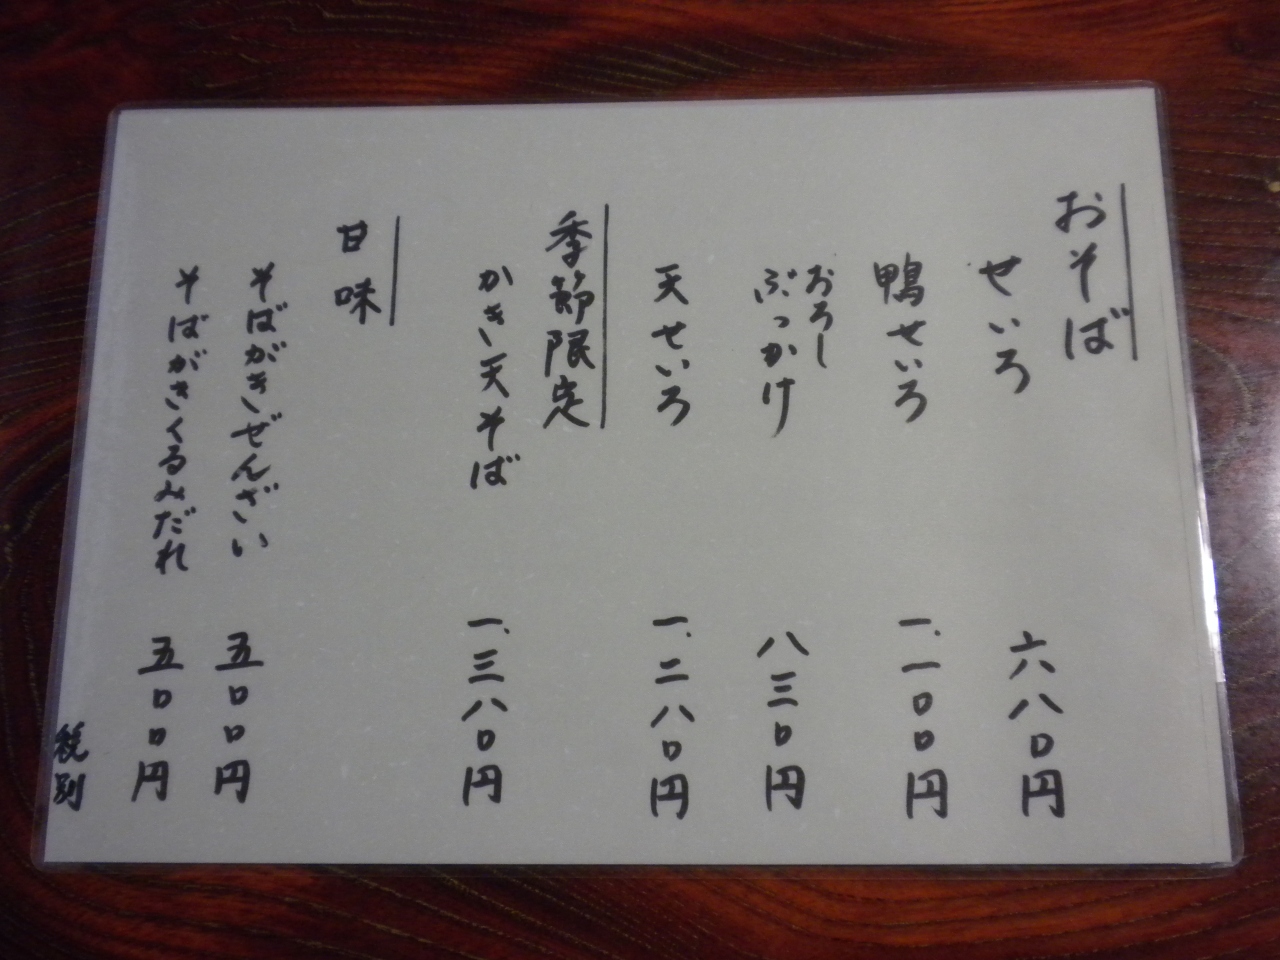 おそば
せいろ 六八〇円
鴨せいろ 一、一〇〇円
おろし
ぶっかけ 八三〇円
天せいろ 一、二八〇円
季節限定
かき天そば 一、三八〇円
甘味
そばがきぜんざい 五〇〇円
そばがきくるみだれ 五〇〇円
税別